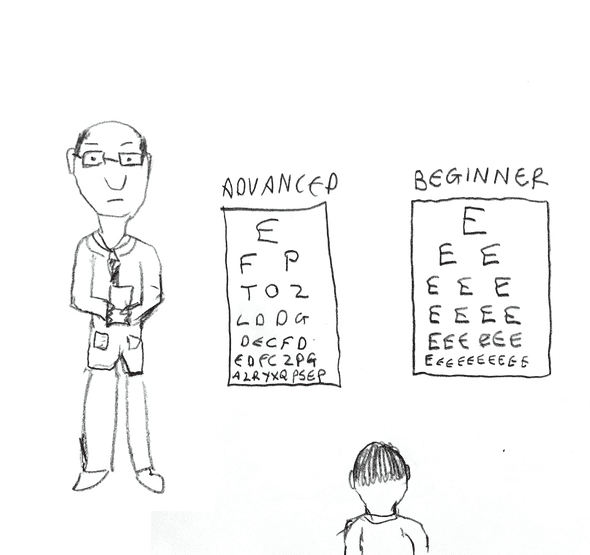 ADVANCED
E
F P
T O Z
L D D G
DECFD
EDFCZPG
AZRYXQPSEP
BEGINNER
E
E E
E E E
E E E E
EEEEEE
EEEEEEEEEE